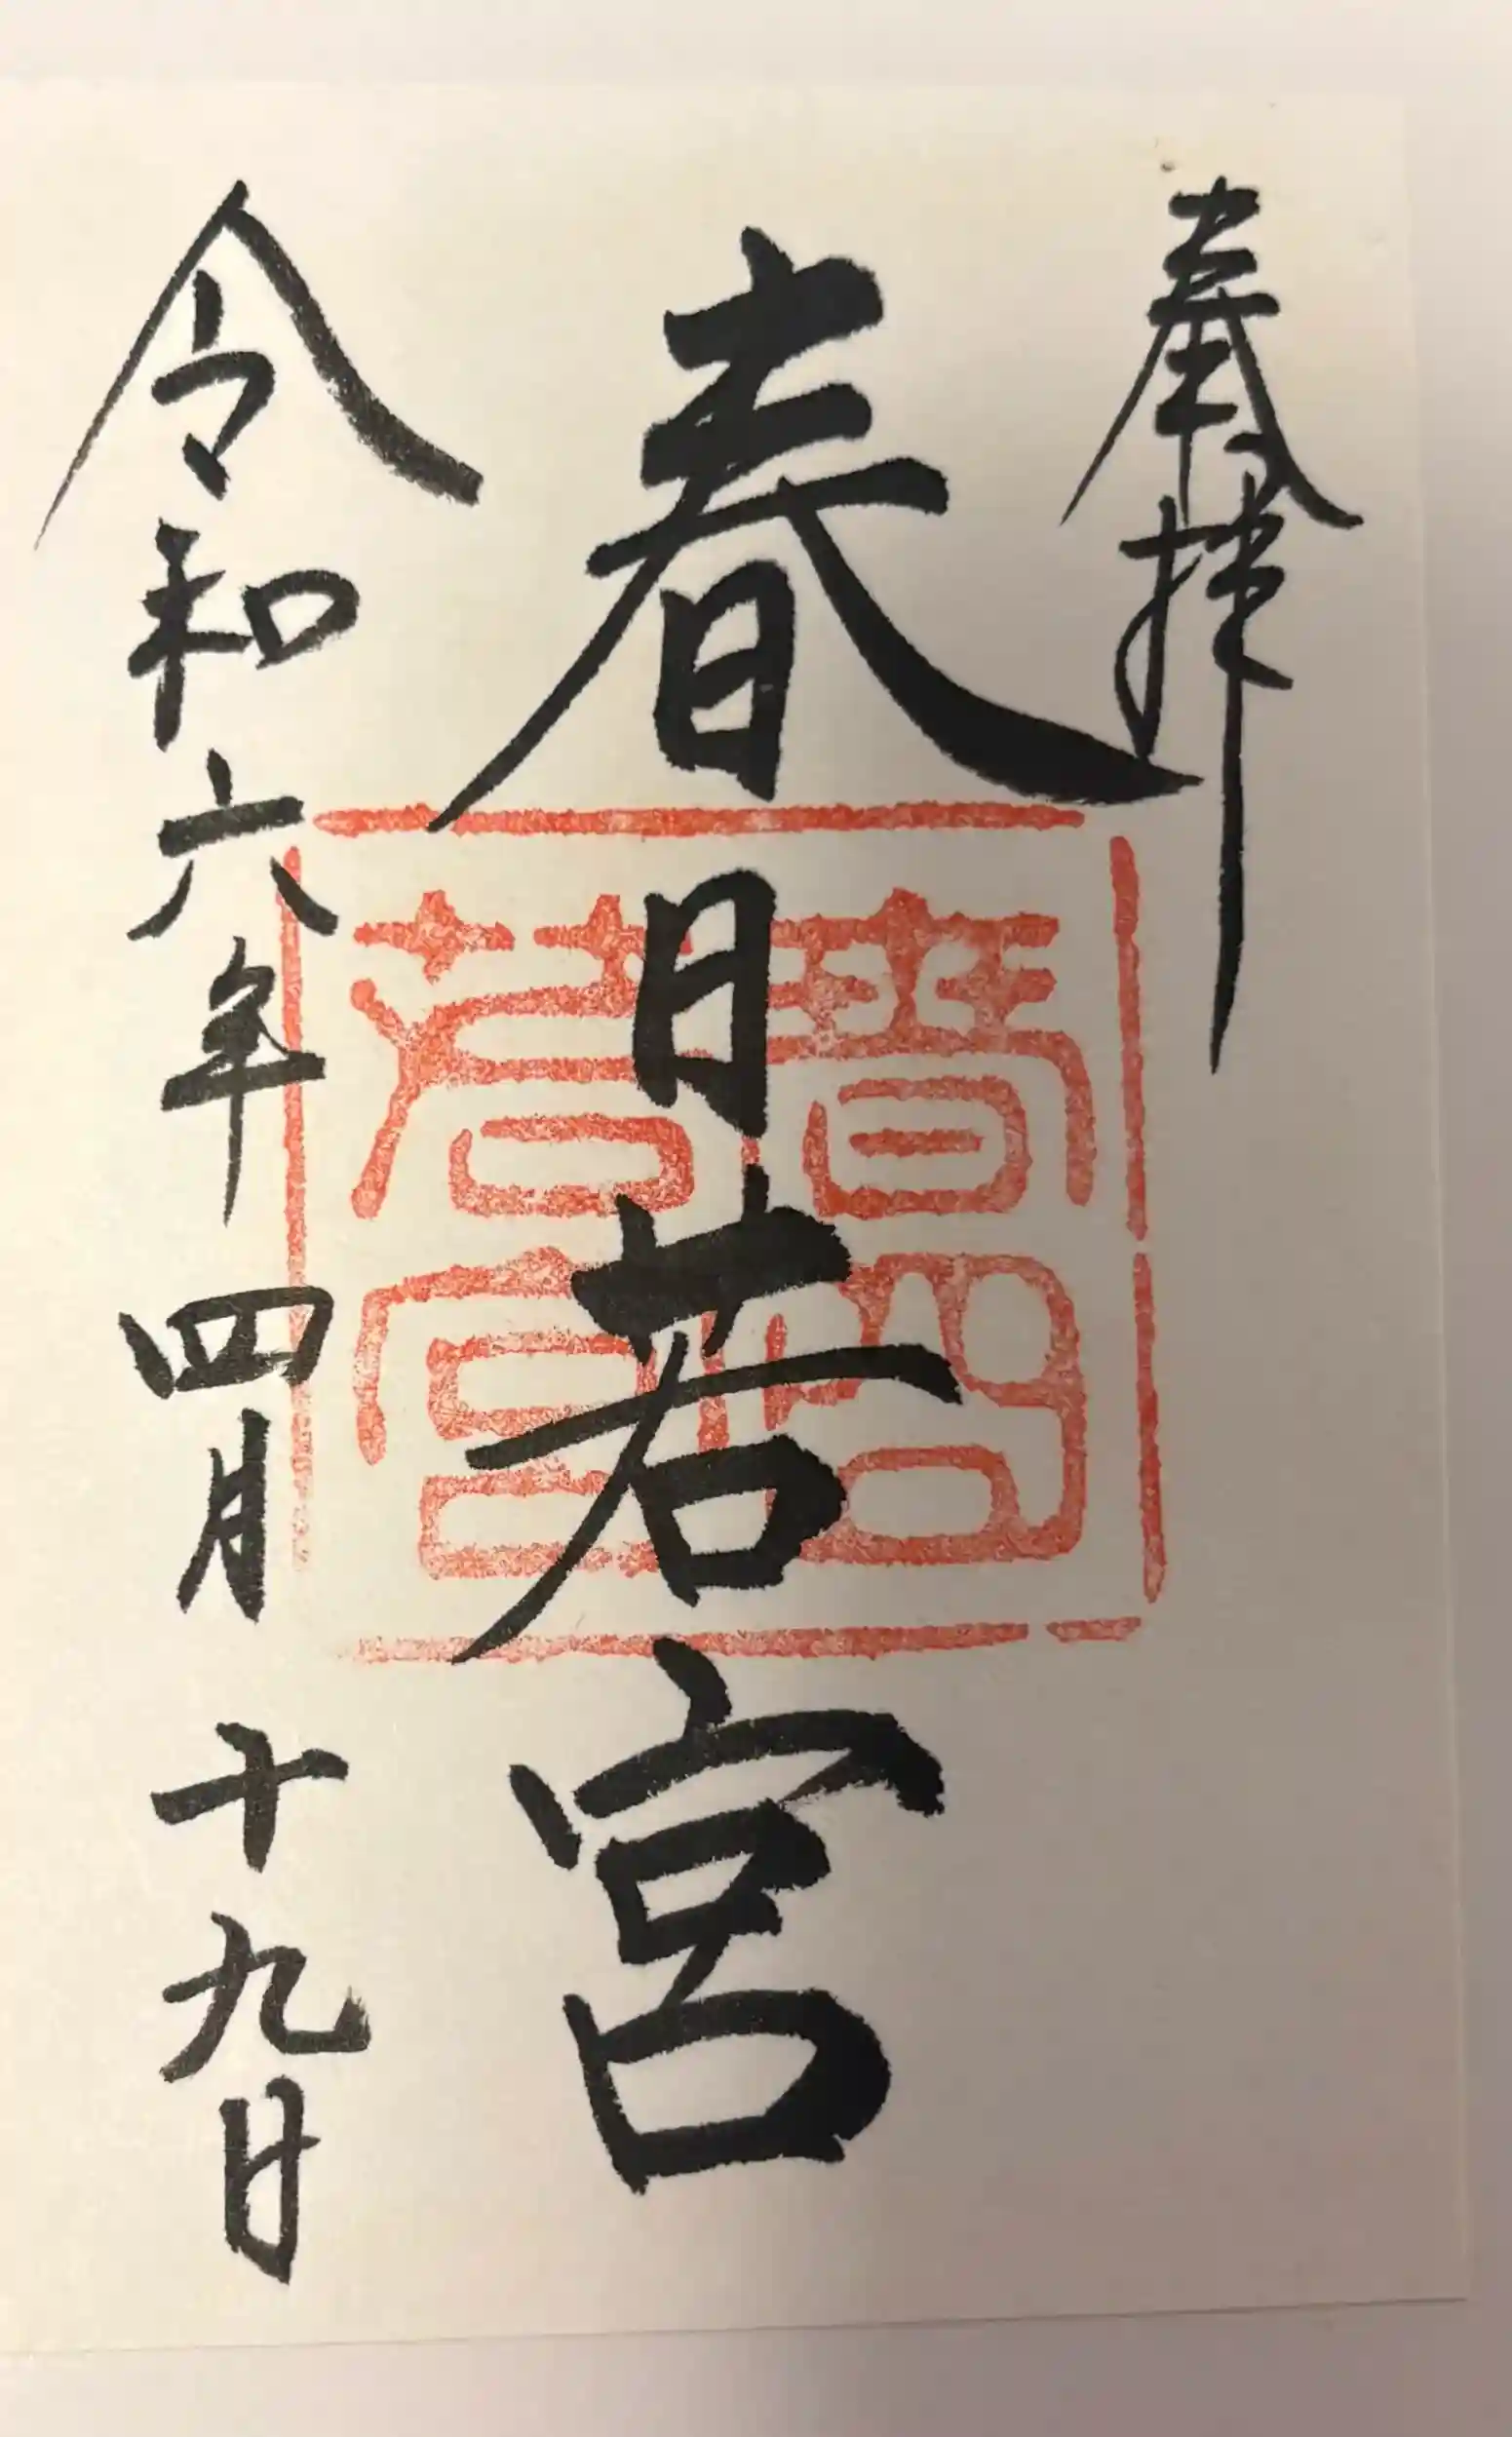 奉拝
春日若宮
令和六年四月十九日